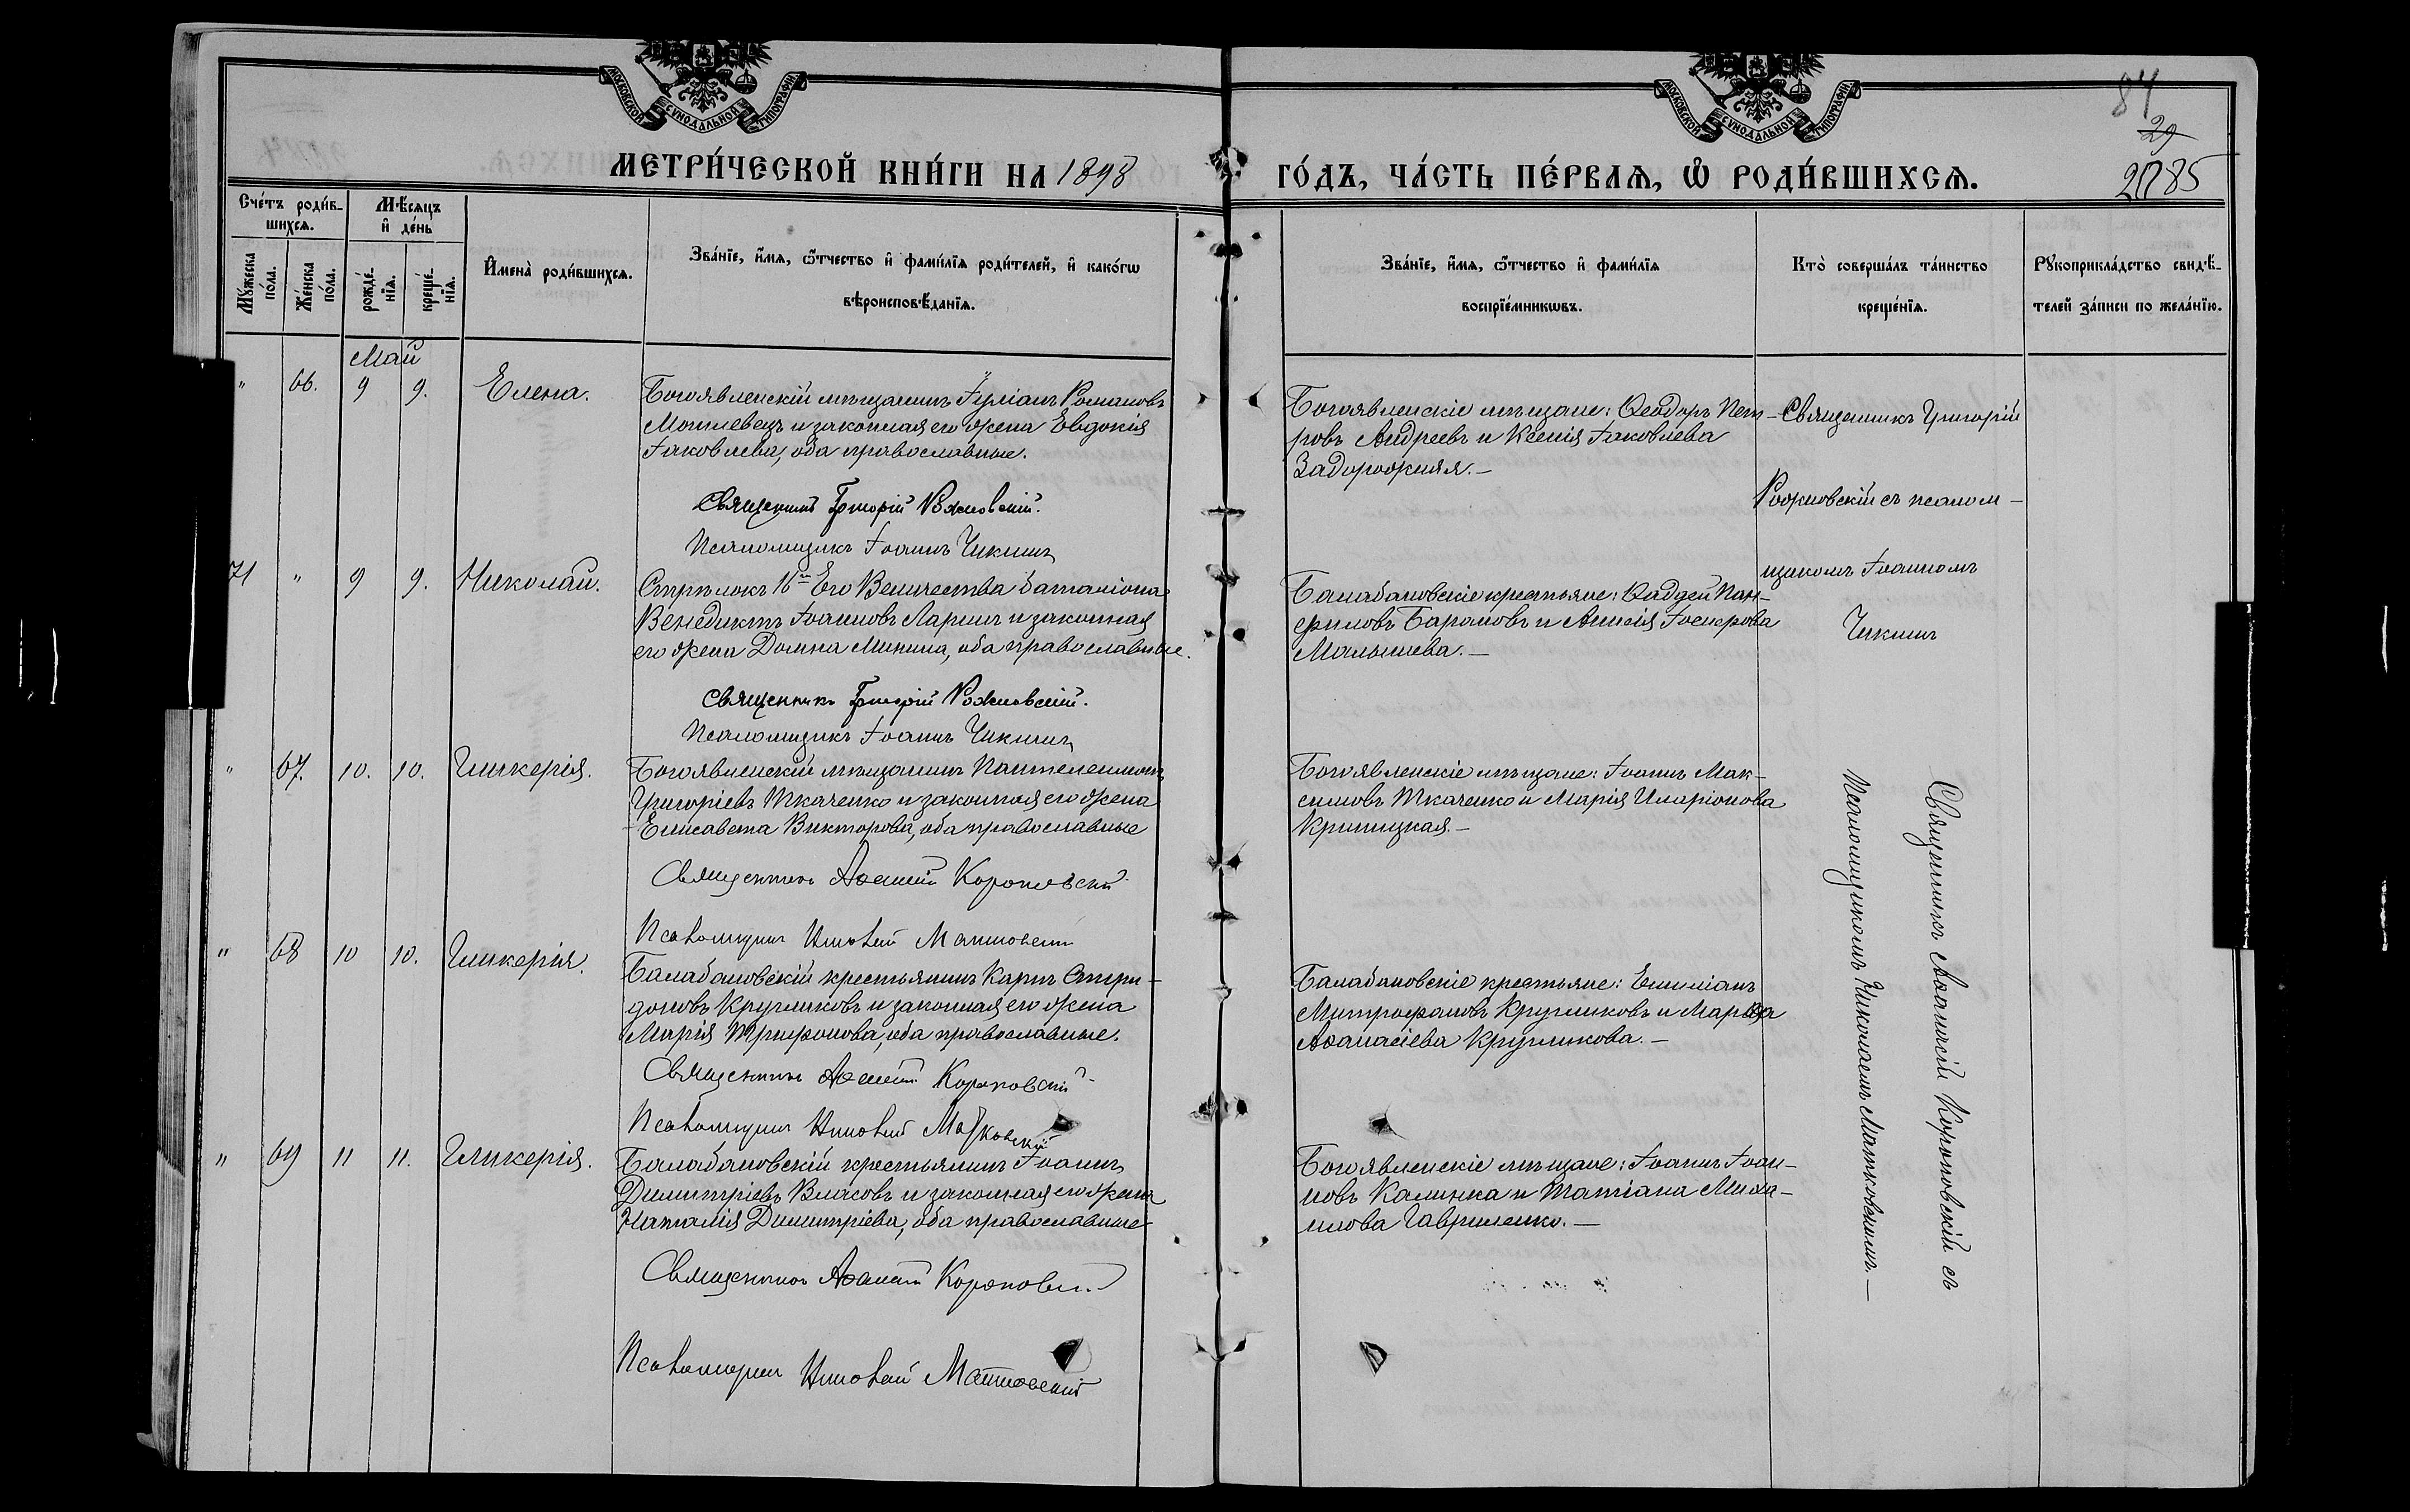 МОСКОВСКОЙ СѴНОДАЛЬНОЙ ТИПОГРАФІИ
МОСКОВСКОЙ СѴНОДАЛЬНОЙ ТИПОГРАФІИ
84
29
85
МЕТРИ́ЧЕСКОЙ КНИ́ГИ НА 1898 ГО́ДЪ, ЧА́СТЬ ПЕ́РВАѦ, Ѡ РОДИ́ВШИХСѦ.
Сче́тъ роди́в-
шихсѧ.
Мѣ́сѧцъ
и҆ де́нь
Мꙋ́жеска по́ла.
Же́нска по́ла.
рожде́нїѧ.
креще́нїѧ.
И҆мена̀ роди́вшихсѧ.
Зва́нїе, и҆́мѧ, ѻ҆́тчество и҆ фами́лїѧ роди́телей, и҆ како́гѡ
вѣроисповѣ́данїѧ.
Зва́нїе, и҆́мѧ, ѻ҆́тчество и҆ фами́лїѧ
воспрїе́мникѡвъ.
Кто̀ соверша́лъ та́инство
креще́нїѧ.
Рꙋкоприкла́дство свидѣ́-
телей за́писи по жела́нїю.
Май
" 66. 9 9. Елена.
Богоявленскій мѣщанинъ Іуліанъ Романовъ
Могилевецъ и законная его жена Евдокія
Іаковлева, оба православные.
Священникъ Григорій Рожковскій.
Псаломщикъ Іоаннъ Чикишъ
Богоявленскіе мѣщане: Ѳеодоръ Пет-
ровъ Андреевъ и Ксенія Іаковлева
Задорожняя.—
Священникъ Григорій
Рожковскій съ псалом-
щикомъ Іоанномъ
Чикишъ
71 " 9 9. Николай.
Стрѣлокъ 16го Его Величества баталіона
Венедиктъ Іоанновъ Ларинъ и законная
его жена Домна Минина, оба православные.
Священникъ Григорій Рожковскій.
Псаломщикъ Іоаннъ Чикишъ
Балабановскіе крестьяне: Ѳаддей Пан-
филовъ Барановъ и Анисія Іосифова
Малышева.—
" 67. 10. 10. Гликерія.
Богоявленскій мѣщанинъ Пантелеимонъ
Григоріевъ Ткаченко и законная его жена
Елисавета Викторова, оба православные
Священникъ Аѳанасій Короповскій
Псаломщикъ Николай Матковскій
Богоявленскіе мѣщане: Іоаннъ Мак-
симовъ Ткаченко и Марія Иларіонова
Криницкая.—
Священникъ Аѳанасій Короповскій съ
псаломщикомъ Николаемъ Матковскимъ.—
" 68 10 10. Гликерія.
Балабановскій крестьянинъ Карпъ Спири-
доновъ Кругликовъ и законная его жена
Марія Трифонова, оба православные.
Священникъ Аѳанасій Короповскій
Псаломщикъ Николай Матковскій
Балабановскіе крестьяне: Емиліанъ
Митрофановъ Кругликовъ и Марѳа
Аѳанасіева Кругликова.—
" 69 11 11. Гликерія.
Балабановскій крестьянинъ Іоаннъ
Димитріевъ Власовъ и законная его жена
Наталія Димитріева, оба православные
Священникъ Аѳанасій Короповскій
Псаломщикъ Николай Матковскій
Богоявленскіе мѣщане: Іоаннъ Іоан-
новъ Калинка и Татіана Миха-
илова Гавриленко.—